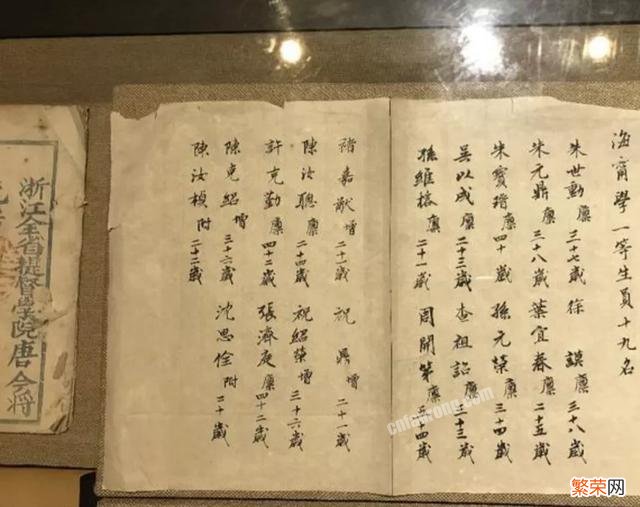 海甯學一等生員十九名
朱世勳 廪 三十七歲 徐 謨 廪 三十八歲
朱元鼎 廪 三十八歲 葉宜春 廪 二十五歲
朱寶瑨 廪 四十歲 孫元榮 廪 三十四歲
吳以成 廪 二十三歲 查祖詒 廪 三十三歲
孫維榕 廪 二十一歲 周開第 廪 三十四歲
褚嘉猷 增 二十一歲 祝 鼎 增 二十一歲
陳汝聰 廪 二十四歲 祝紹榮 增 三十六歲
許克勤 廪 四十二歲 張濟庚 廪 四十二歲
陳克紹 增 三十六歲 沈思佺 附 二十歲
陳汝楨 附 二十二歲
浙江全省提督學院唐 今將
cnfanrong.com
繁荣网